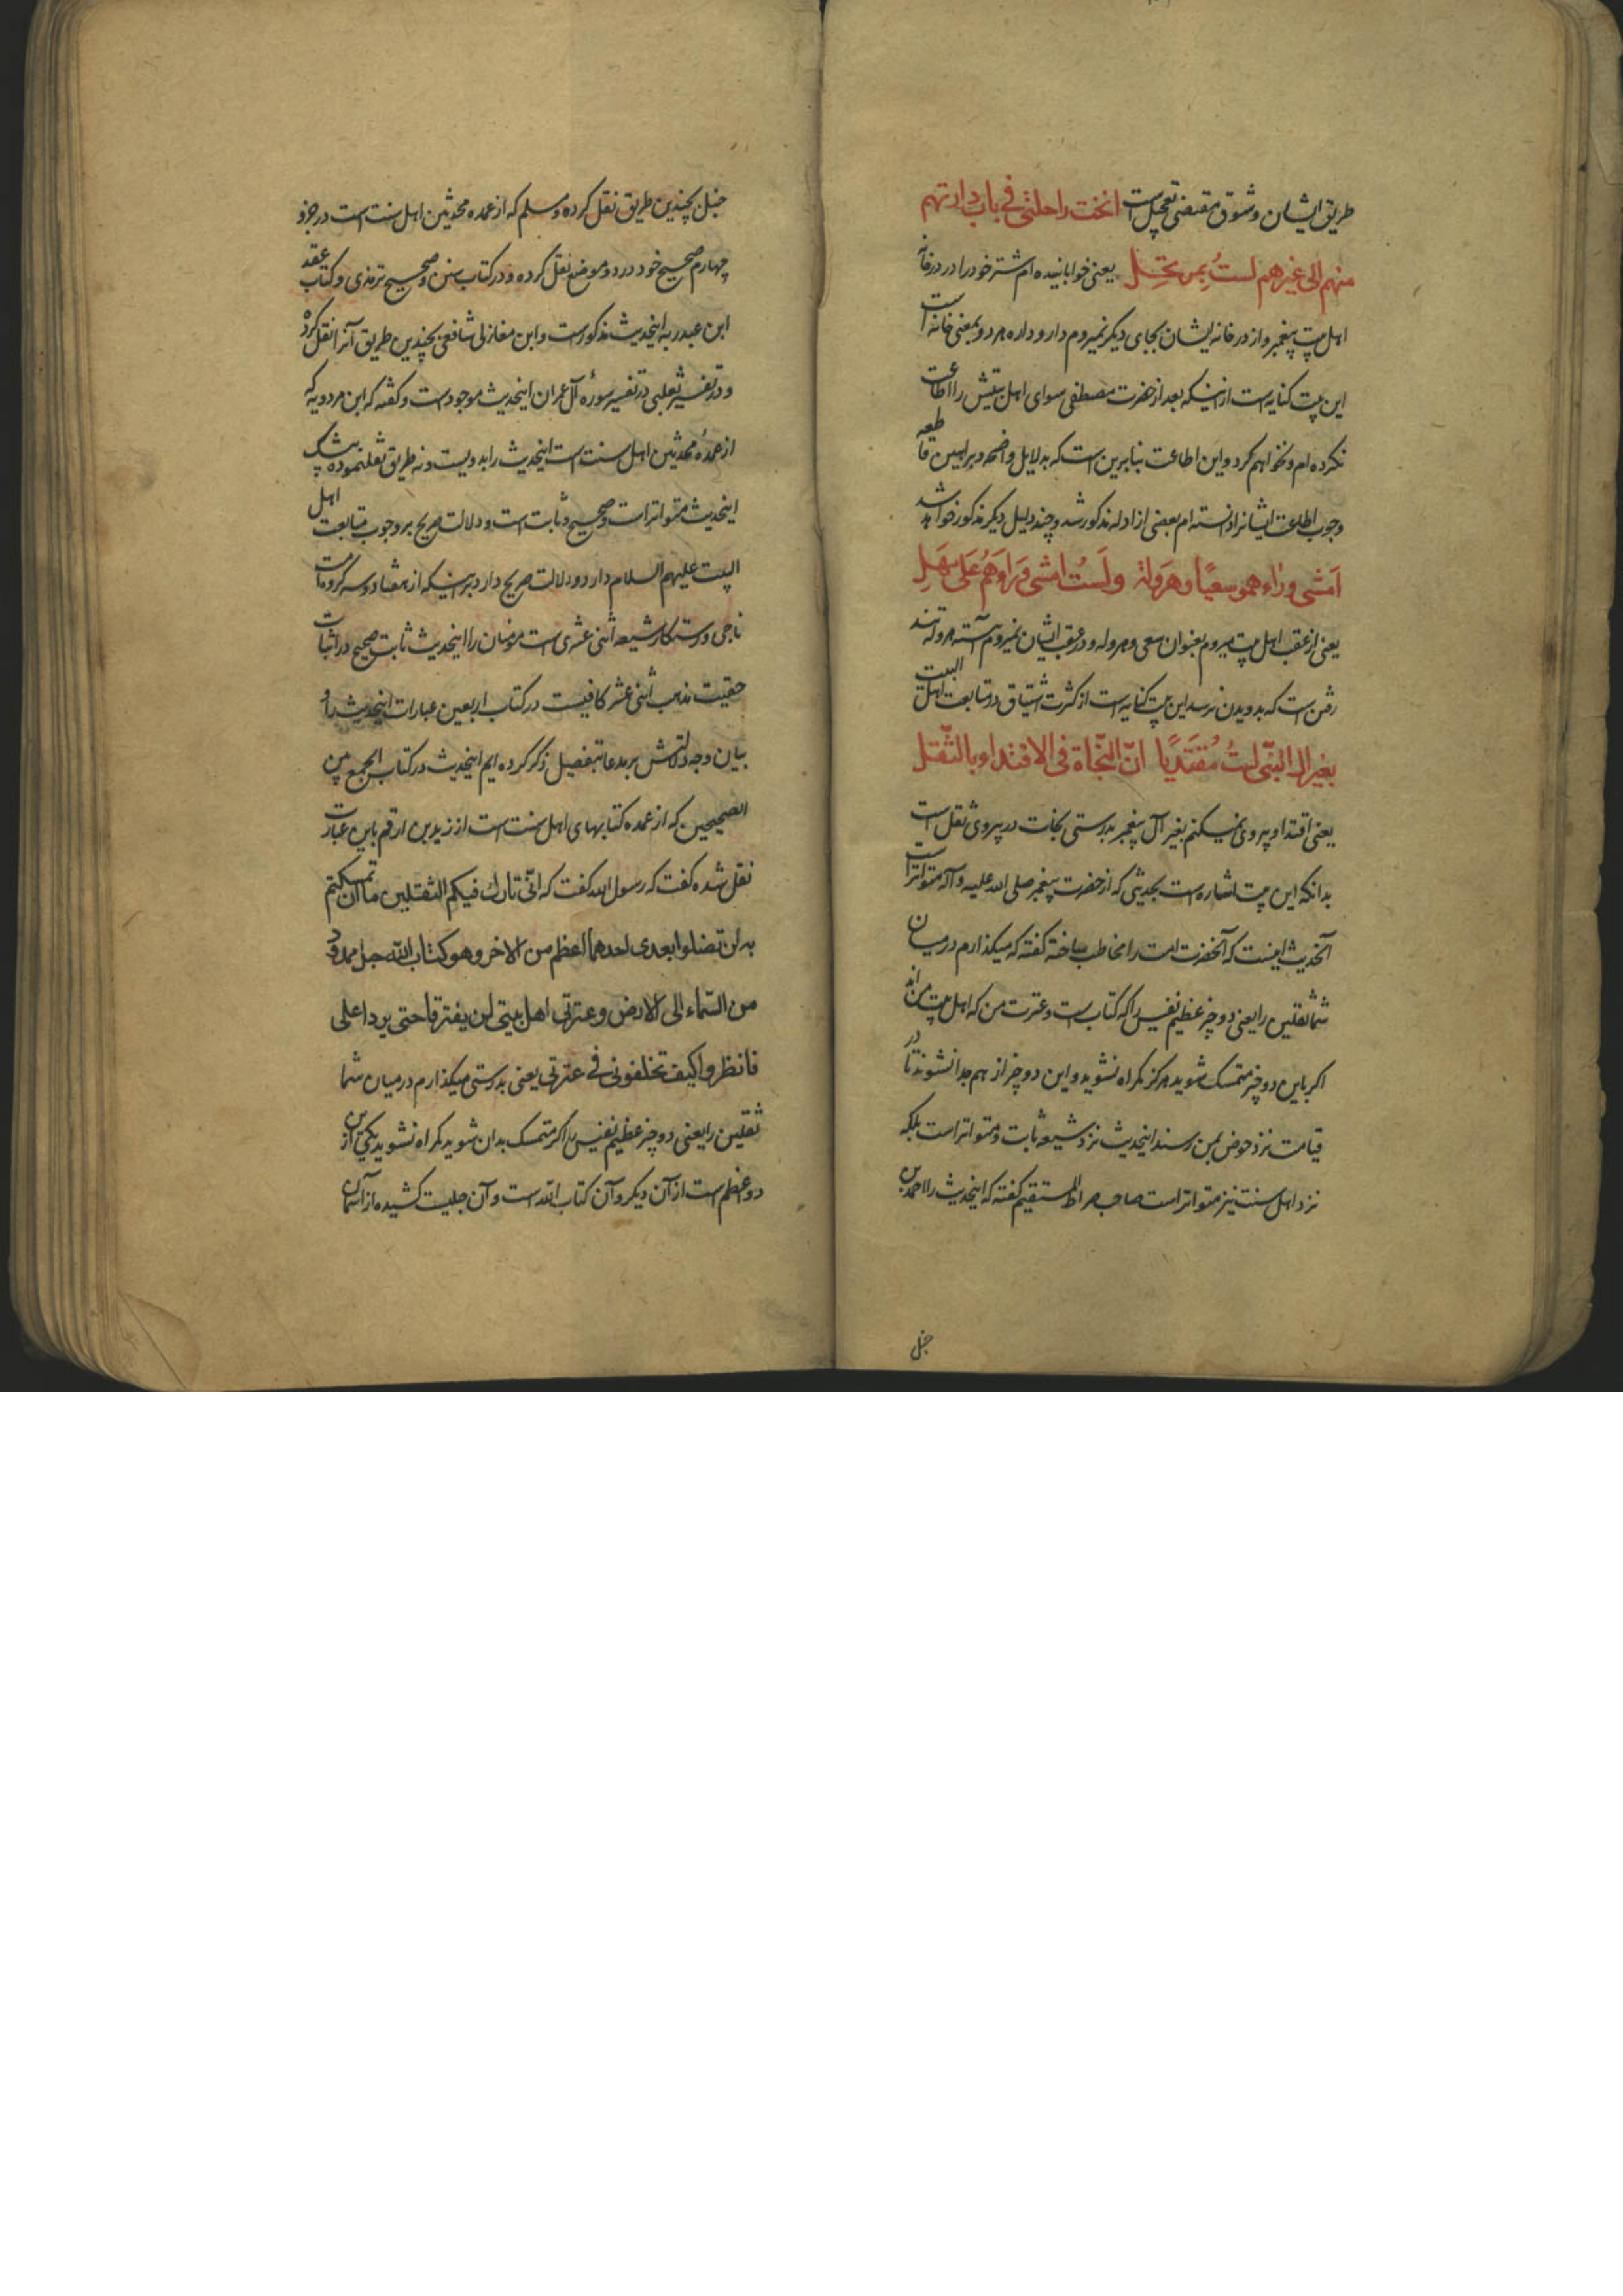 طریق ایشان و شوق مقتضی تعجیل است انخت راحلتی فی باب دارتهم
منهم الی غیرهم لستُ بمرتحِل یعنی خوابانیده ام شتر خود را در در خانه
اهل بیت پیغمبر و از در خانه ایشان بجای دیگر نمیروم دار و داره هر دو بمعنی خانه است
این بیت کنایه است از اینکه بعد از حضرت مصطفی سوای اهل بیتش را اطاعت
نکرده ام و نخواهم کرد و این اطاعت بنابرین است که بدلایل واضحه و براهین قاطعه
وجوب اطاعت ایشانرا دانسته ام بعضی از ادله مذکور شد و چند دلیل دیگر مذکور خواهد شد
اَمشی وراءهمو سعیًا و هَروَلة ولَستُ امشی وَرَاوَهُم عَلی مَهَلِ
یعنی از عقب اهل بیت میروم بعنوان سعی و هروله و در عقب ایشان نمیروم آهسته هروله تند
رفتن است که بدویدن نرسد این بیت کنایه است از کثرت اشتیاق در متابعت اهل البیت
بغیر ال النبّی لستُ مُقتَدیًا انّ النّجاة فی الاقتداو بالثّقل
یعنی اقتدا و پیروی نمیکنم بغیر آل پیغمبر بدرستی نجات در پیروی ثقل است
بدانکه این بیت اشاره است بحدیثی که از حضرت پیغمبر صلی الله علیه و آله متواتر است
آنحدیث اینست که آنحضرت امت را مخاطب ساخته گفته که میگذارم در میان
شما ثقلین را یعنی دو چیز عظیم نفیس را که کتاب است و عترت من که اهل بیت من اند
اگر باین دو چیز متمسک شوید هرگز گمراه نشوید و این دو چیز از هم جدا نشوند تا در
قیامت نزد حوض بمن رسند اینحدیث نزد شیعه ثابت و متواتر است بلکه
نزد اهل سنت نیز متواتر است صاحب صراط المستقیم گفته که اینحدیث را احمد بن
حنبل
حنبل بچندین طریق نقل کرده و مسلم که از عمده محدثین اهل سنت است در جزو
چهارم صحیح خود در دو موضع نقل کرده و در کتاب سنن و صحیح ترمذی و کتاب عقد
ابن عبدربه اینحدیث مذکور است و ابن مغازلی شافعی بچندین طریق آنرا نقل کرده
و در تفسیر ثعلبی در تفسیر سورهٔ آل عمران اینحدیث موجود است و گفته که ابن مردویه که
از عمدهٔ محدثین اهل سنت است اینحدیث را بدویست و نه طریق نقل نموده بیشک
اینحدیث متواتر است و صحیح و ثابت است و دلالت صریح بر وجوب متابعت اهل
البیت علیهم السلام دارد و دلالت صریح دارد بر اینکه از هفتاد و سه گروه امت
ناجی و رستگار شیعه اثنی عشری است مؤمنان را اینحدیث ثابت صحیح در اثبات
حقیت مذهب اثنی عشر کافیست در کتاب اربعین عبارات اینحدیث را و
بیان وجه دلالتش بر مدعا بتفصیل ذکر کرده ایم اینحدیث در کتاب الجمع بین
الصحیحین که از عمده کتابهای اهل سنت است از زید بن ارقم باین عبارت
نقل شده گفت که رسول الله گفت که انّی تارك فیکم الثقلین ما ان تمسکتم
به لن تضلوا بعدی احدهما اعظم من الاخر وهو کتاب الله حبل ممدود
من السّماء الی الارض و عترتی اهل بیتی لن یفترقا حتی یردا علی
فانظروا کیف تخلفونی فی عترتی یعنی بدرستی میگذارم در میان شما
ثقلین را یعنی دو چیز عظیم نفیس را اگر متمسک بدان شوید گمراه نشوید یکی از این
دو اعظم است از آن دیگر و آن کتاب الله است و آن حبلیست کشیده از آسمان